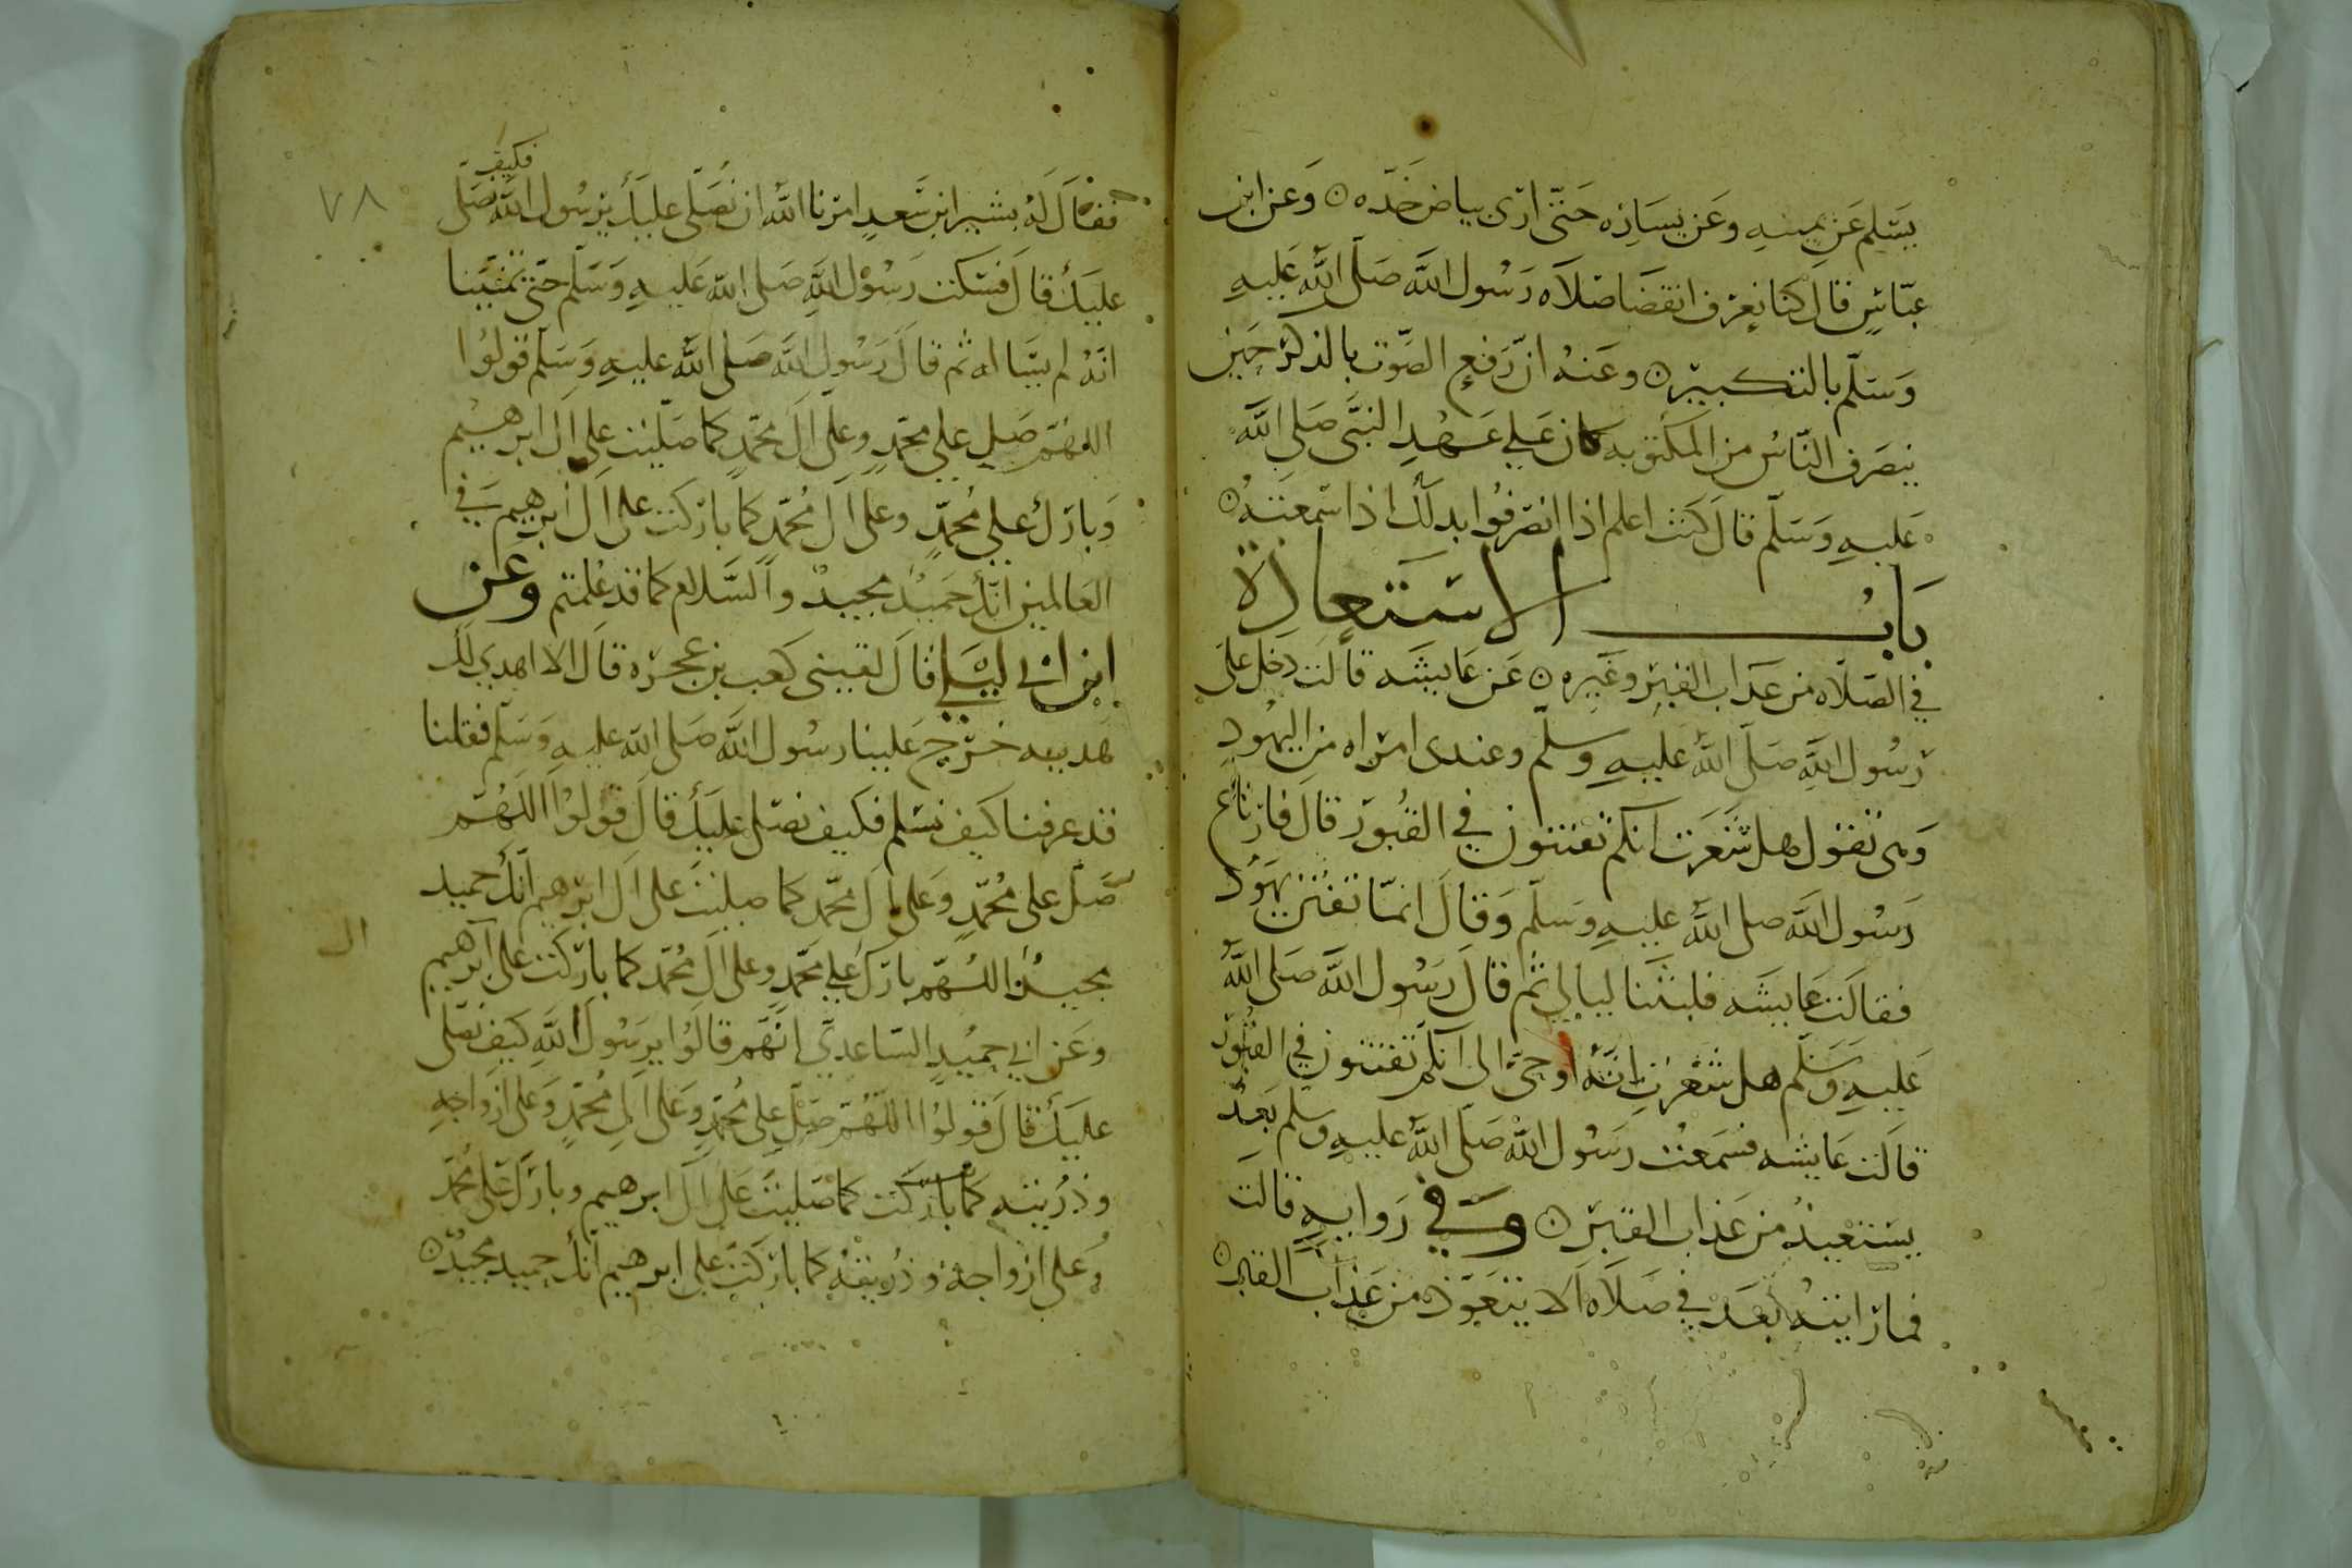 يسَلم عَن يمينهِ وعَن يسَارِه حَتّى ارَى بياض خَدّه ٥ وَعَن ابن
عبّاسٍ قال كنا نعرف انقضَا صَلاَه رَسُول اللَّه صَلّى اللَّه عَليهِ
وَسَلّم بالتكبير ٥ وعَنهُ انّ رَفعِ الصّوت بالذكر حين
ينصَرف النّاس من المكتوبه كان عَلي عَهْدِ النبَّى صَلى اللَّه
عَليهِ وَسَلّم قال كنت اعلم اذا انصرفُوا بدلك اذا سَمعتهُ ٥
بَابُ الاستعاذة
في الصّلاه من عذاب القبر وغيره ٥ عَن عَايشَه قالت دخل علَى
رَسُول اللَّهِ صَلّى اللَّه عَليهِ وسلّم وعندى امرَاه من اليهُودِ
وَهى تقول هل شَعَرت انكم تفتنون في القبُور قالَ فارتاع
رَسُول اللَّه صلى اللَّه عليهِ وسَلّم وَقال انمّا تفتن يهُود
فقالت عَايشَه فلبثنا ليالي ثم قال رَسُول اللَّه صَلى اللَّه
عَليهِ وَسَلّم هل شعرتِ انّهُ اوحىَ الى انكم تفتنون في القبُور
قالت عَايشه فسَمعْت رَسُول اللَّه صَلّى اللَّه عليهِ وسلم بَعدُ
يستعيذُ من عَذاب القبر ٥ وَفي رَوايهٍ قالت
فما رَايتهُ بَعَد في صَلاَه الا يتعَوّذ من عَذاب القبر ٥
٧٨
فقال لهُ بشير ابن سَعدٍ امرنا اللَّه ان نصَلى عليك يرسُول اللَّه فكيف نصَلى
عليك قال فسَكت رَسُول اللَّهِ صَلى اللَّه عَليهِ وَسَلّم حتى تمنّينا
انهُ لم يسَاله ثم قالَ رَسُول اللَّه صَلى اللَّه عليهِ وَسَلّم قولوُا
اللهُمّ صَلِ على محمّدٍ وعلى الَ محمّدٍ كما صَلّيت على الَ ابرهيم
وَبارَك علي مُحمّدٍ وعلى الَ مُحمّدٍ كما باركت على الَ ابرهيم في
العَالمين انّكَ حَميدٌ مجيدٌ والسَّلام كما قد علمتم وعَن
ابن ابي ليَلي قالَ لقيني كعب بن عجره قال الا اهدي لك
هَديه خرَج عَلينا رسُول اللَّه صَلى اللَّه عليهِ وَسَلّم فقلنا
قد عرفنا كيف نسَلم فكيف نصَلى عليكَ قالَ قولوُا اللّهُمّ
صَلّ على مُحمّدٍ وَعلى الَ محّمد كما صليتَ على الَ ابرَهيم انكَ حميد
ال
مجيدٌ اللّهُمّ بارَك علي محّمدٍ وعلى الَ مُحّمد كما باركت على ابرهيم
وعَن ابي حميدٍ السّاعديّ انّهَم قالوُا يرسُول اللَّهِ كيف نصَلى
عليَك قالَ قولوُا اللّهُمّ صَلّ على مُحمّدٍ وَعَلى الِ مُحمّدٍ وعَلى ازواجهِ
وذُريته كما باركت كما صَليتَ عَلى الَ ابرهيم وبارَك عَلى محّمد
وعَلى ازواجهِ وذُريتهُ كما باركتَ على ابرهيم انك حميد مجيدٌ ٥